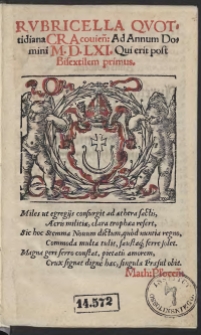 RVBRICELLA QVOT=
tidiana CRAcouień: Ad Annum Do
mini M.D.LXI. Qui erit post
Bisextilem primus.
Miles ut egregijs consurgit ad æthera factis,
Aere militiæ, clara trophæa refert,
Sic hoc Stemma Nouum dictum, quod nuntia regno,
Commoda multa tulit, faustaq; ferre solet.
Magna geri ferro constat, pietatis amorem,
Crux signat digne hæc, singula Præsul obit.
14.572